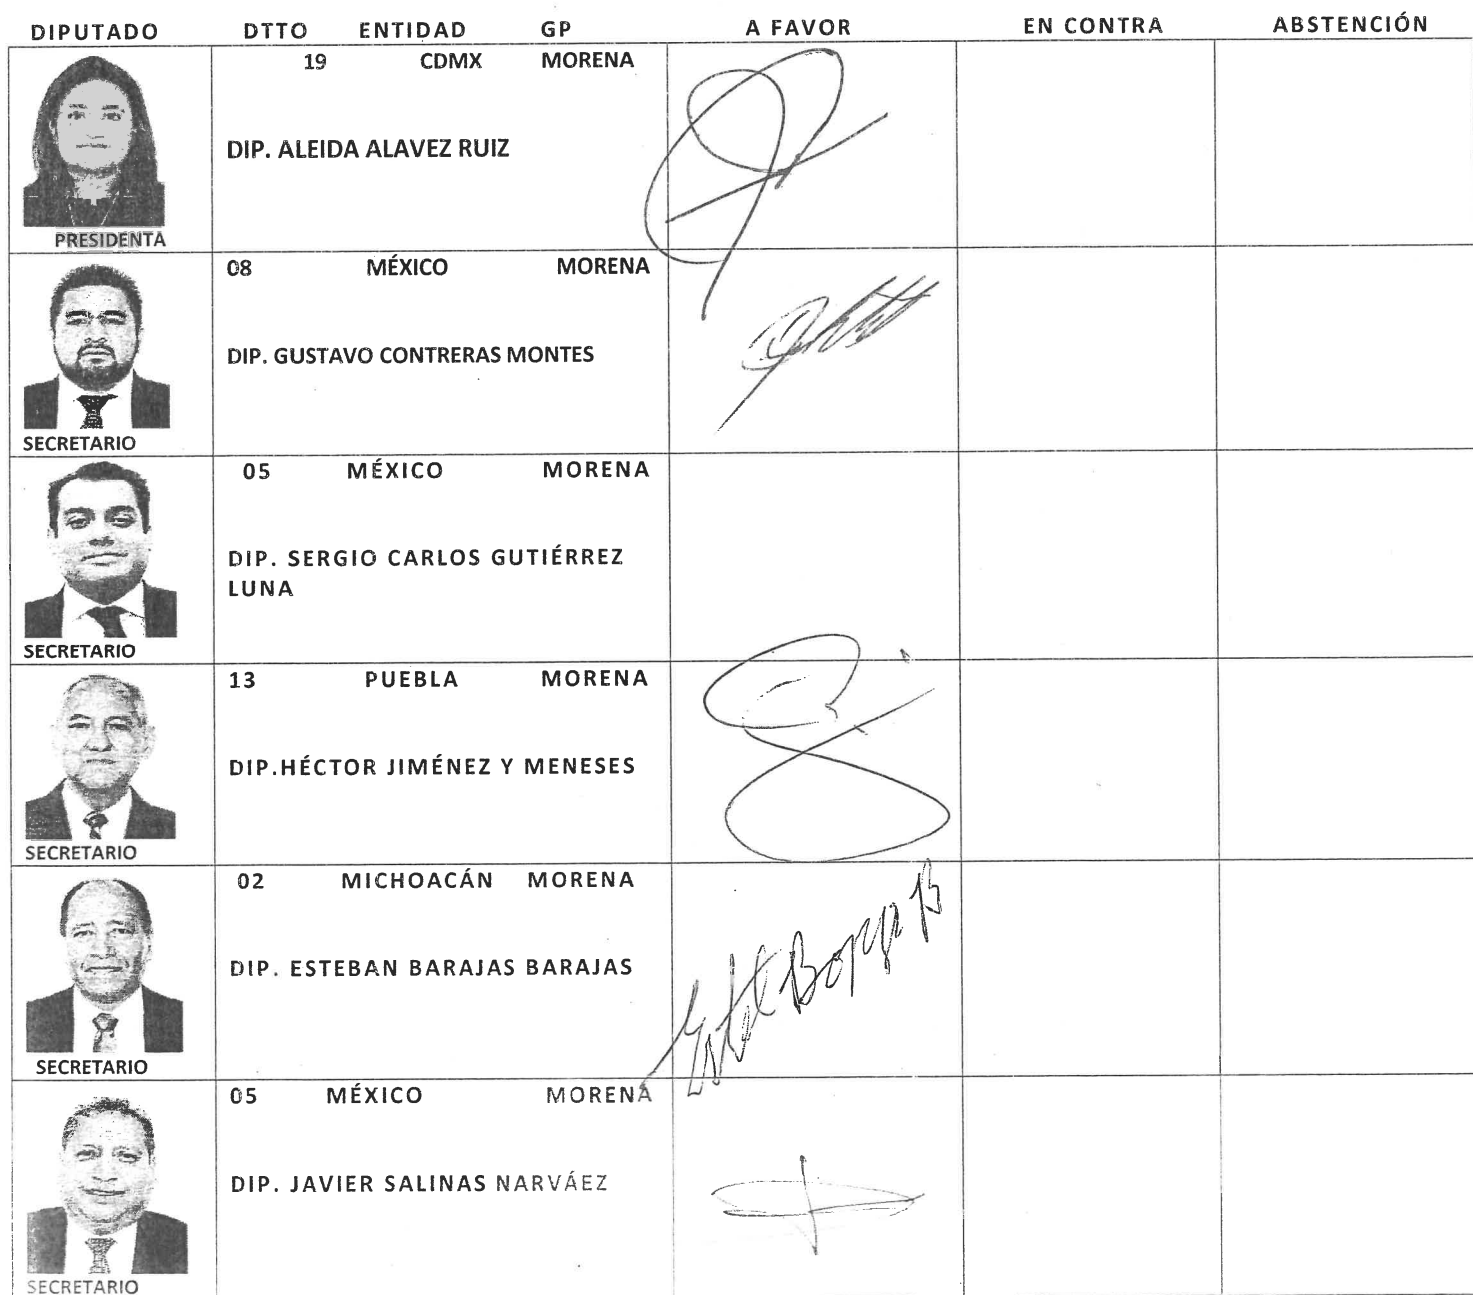 DIPUTADO DTTO ENTIDAD GP A FAVOR EN CONTRA ABSTENCIÓN
19 CDMX MORENA
DIP. ALEIDA ALAVEZ RUIZ
PRESIDENTA
08 MÉXICO MORENA
DIP. GUSTAVO CONTRERAS MONTES
SECRETARIO
05 MÉXICO MORENA
DIP. SERGIO CARLOS GUTIÉRREZ
LUNA
SECRETARIO
13 PUEBLA MORENA
DIP.HÉCTOR JIMÉNEZ Y MENESES
SECRETARIO
02 MICHOACÁN MORENA
DIP. ESTEBAN BARAJAS BARAJAS
SECRETARIO
05 MÉXICO MORENA
DIP. JAVIER SALINAS NARVÁEZ
SECRETARIO